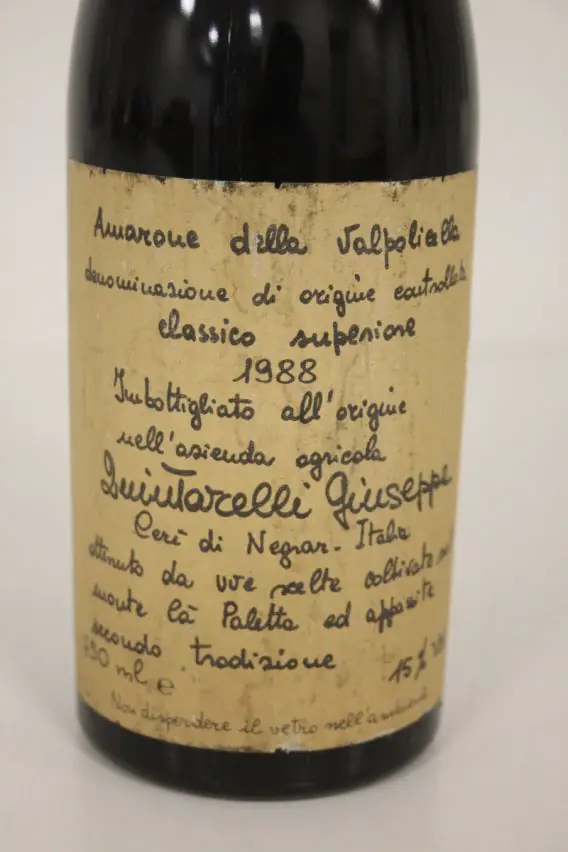 Amarone della Valpolicella
denominazione di origine controllata
classico superiore
1988
Imbottigliato all'origine
nell'azienda agricola
Quintarelli Giuseppe
Cerè di Negrar - Italia
ottenuto da uve scelte coltivate sul
monte Cà Paletta ed appassite
secondo tradizione
750 ml e 15% Vol
Non disperdere il vetro nell'ambiente